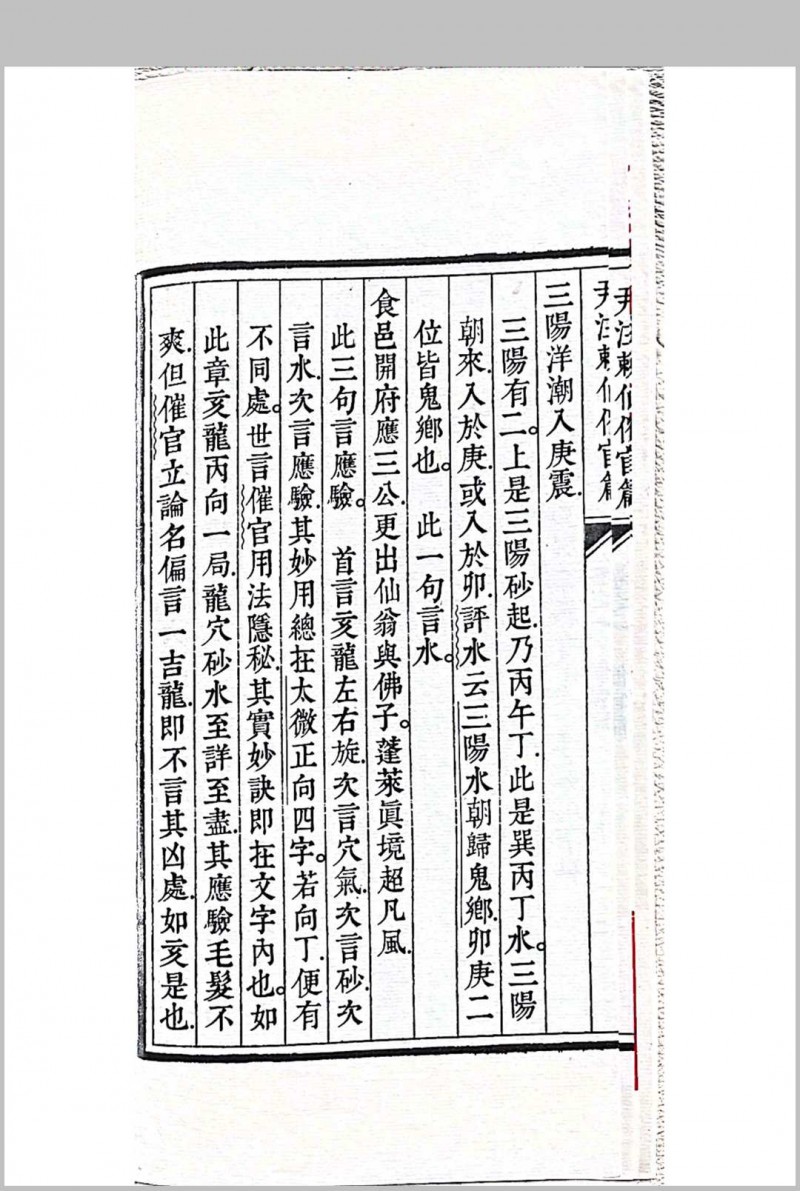 尹注賴仙催官篇
尹注賴仙催官篇
三陽洋潮入庚震.
三陽有二。上是三陽砂起.乃丙午丁.此是巽丙丁水。三陽
朝來.入於庚.或入於卯.評水云三陽水朝歸鬼鄉.卯庚二
位皆鬼鄉也。 此一句言水。
食邑開府應三公.更出仙翁與佛子。蓬萊眞境超凡風.
此三句言應驗。 首言亥龍左右旋.次言穴氣.次言砂.次
言水.次言應驗.其妙用總在太微正向四字。若向丁.便有
不同處。世言催官用法隱秘.其實妙訣即在文字內也。如
此章亥龍丙向一局.龍穴砂水至詳至盡.其應驗毛髮不
爽.但催官立論名偏言一吉龍.即不言其凶處.如亥是也.